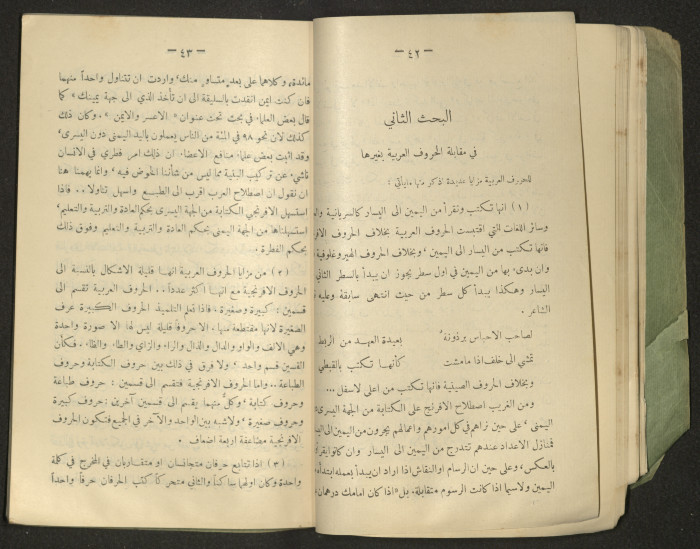 — ٤٢ —
البحث الثاني
في مقابلة الحروف العربية بغيرها
للحروف العربية مزايا عديدة نذكر منها ما يأتي :
(١) انها تكتب وتقرأ من اليمين الى اليسار كالسريانية
وسائر اللغات التي اقتبست الحروف العربية بخلاف الحروف
فانها تكتب من اليسار الى اليمين، وبخلاف الحروف الهيروغلوفية
وان بدىء بها من اليمين في اول سطر يجوز ان يبدأ بالسطر الثاني
اليسار وهكذا يبدأ كل سطر من حيث انتهى سابقه وعليه
الشاعر .
لصاحب الاحباس برذونة بعيدة العهد من الربط
تمشي الى خلف اذا ما مشت كأنهـا تكتب بالقبطي
وبخلاف الحروف الصينية فانها تكتب من اعلى لاسفل ...
ومن الغريب اصطلاح الافرنج على الكتابة من الجهة اليسرى
اليمنى، على حين نراهم في كل امورهم واعمالهم يجرون من اليمين الى
فمنازل الاعداد عندهم تتدرج من اليمين الى اليسار وان كانوا
بالعكس، وعلى حين ان الرسام او النقاش اذا اراد ان يبدأ بعمله ابتدأ
اليمين ولاسيما اذا كانت الرسوم متقابلة. بل «اذا كان امامك درهمان
— ٤٣ —
مائدة، وكلاهما على بعد متساو منك، واردت ان تتناول واحداً منهما
فان كنت ايمن انقدت بالسليقة الى ان تأخذ الذي الى جهة يمينك» كما
قال بعض العلماء في بحث تحت عنوان «الاعسر والايمن»، وكان ذلك
كذلك لان نحو ٩٨ في المئة من الناس يعملون باليد اليمنى دون اليسرى،
وقد اثبت بعض علماء منافع الاعضاء ان ذلك امر فطري في الانسان
ناشىء عن تركيب البنية مما ليس من شأننا الخوض فيه، وانما يهمنا هنا
ان نقول ان اصطلاح العرب اقرب الى الطبـع واسهل تناولا .. فاذا
استسهل الافرنجي الكتابة من الجهة اليسرى بحكم العادة والتربية والتعليم،
استسهلناها من الجهة اليمنى بحكم العادة والتربية والتعليم وفوق ذلك
بحكم الفطرة .
(٢) من مزايا الحروف العربية انهـا قليلة الاشكال بالنسبة الى
الحروف الافرنجية مع انهـا اكثر عدداً .. الحروف العربية تقسم الى
قسمين : كبيرة وصغيرة ، فاذا تعلم التلميذ الحروف الكبيرة عرف
الصغيرة لانها مقتطعة منها، الا حروفاً قليلة ليس لها الا صورة واحدة
وهي الالف والواو والدال والذال والراء والزاي والطاء والظاء. فكأن
القسمين قسم واحد، ولا فرق في ذلك بين حروف الكتابة وحروف
الطباعة.. واما الحروف الافرنجية فتقسم الى قسمين : حروف طباعة
وحروف كتابة، وكلٌّ منهما يقسم الى قسمين آخرين : حروف كبيرة
وحروف صغيرة، ولا شبه بين الواحد والآخر في الجميع فتكون الحروف
الافرنجية مضاعفة اربعة اضعاف .
(٣) اذا تتابع حرفان متجانسان او متقاربان في المخرج في كلمة
واحدة وكان اولهما ساكناً والثاني متحركاً كتب الحرفان حرفاً واحداً